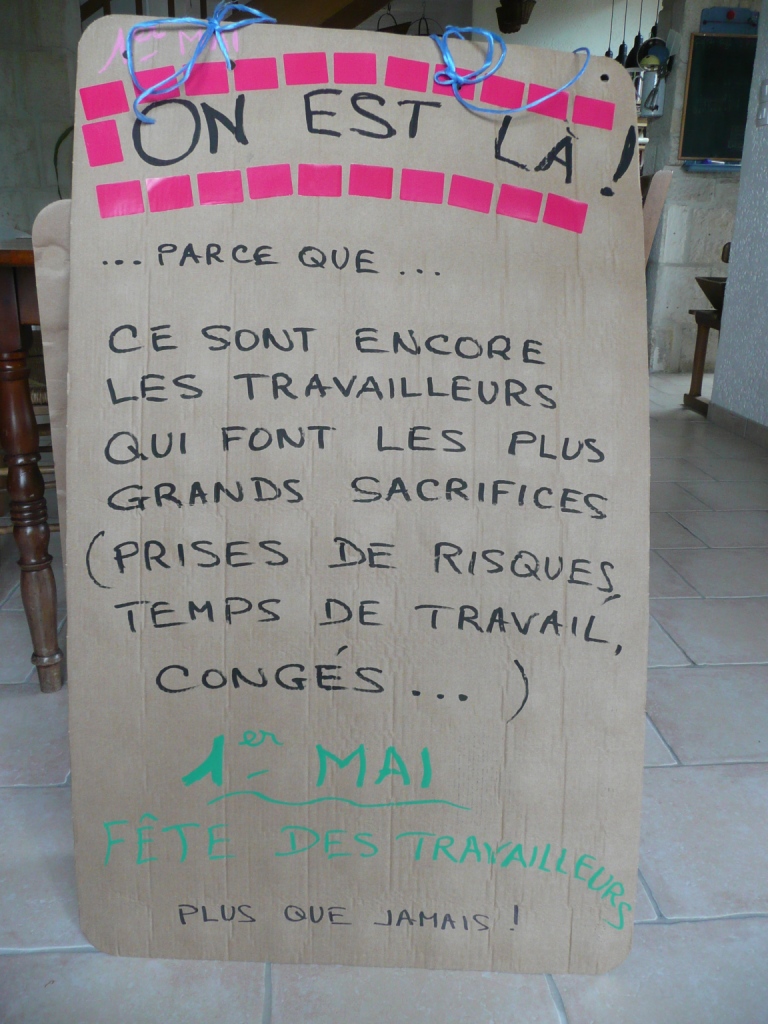 1er MAI
ON EST LÀ !
... PARCE QUE ...
CE SONT ENCORE
LES TRAVAILLEURS
QUI FONT LES PLUS
GRANDS SACRIFICES
(PRISES DE RISQUES,
TEMPS DE TRAVAIL,
CONGÉS ... )
1er MAI
FÊTE DES TRAVAILLEURS
PLUS QUE JAMAIS !